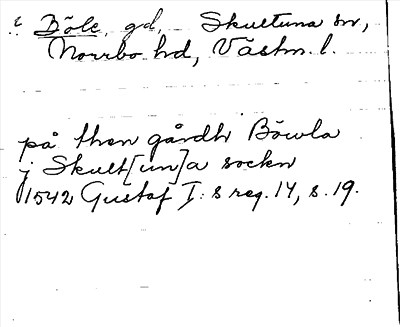 Böle, gd, Skultuna sn,
Norrbo hd, Västm. l.
på then gårdh Böwla
j Skult[un]a sockn
1542 Gustaf I:s reg. 14, s. 19.